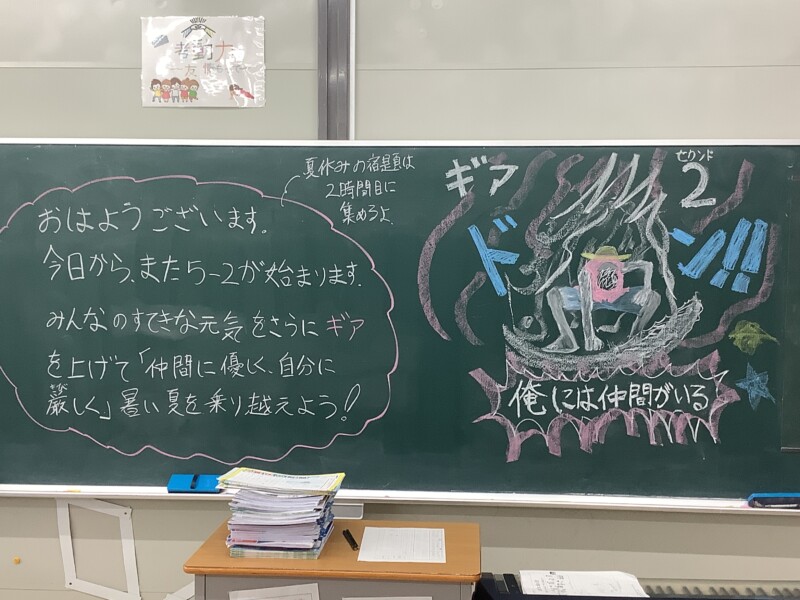 夏休みの宿題は
2時間目に
集めるよ
おはようございます。
今日から、また5-2が始まります。
みんなのすてきな元気をさらにギア
を上げて「仲間に優しく、自分に
厳しく」暑い夏を乗り越えよう!
ギア
セカンド
2
ドン!!
俺には仲間がいる